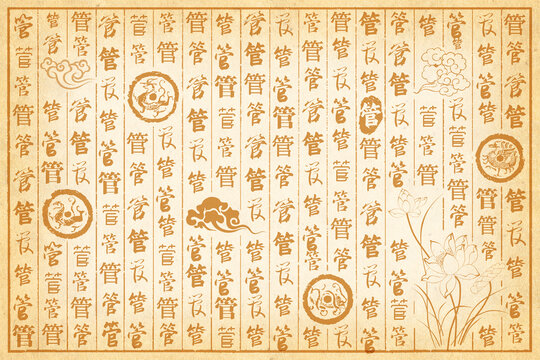 管管管管管管管管管
管管管管管管管管管
管管管管管管管管管
管管管管管管管
管管管管管管管
管管管管管管管管管管管管
管管管管管管管管管管管管
管管管管管管管管管管
管管管管管管管管管管
管管管管管管管管管管管管
管管管管管管管管管管管
管管管管管管管管管管
管管管管管管管管管管
管管管管管管管管管管
管管管管管管管管管管
管管管管管管管管管管管管
管管管管管管管管管管
管管管管管管管管管管